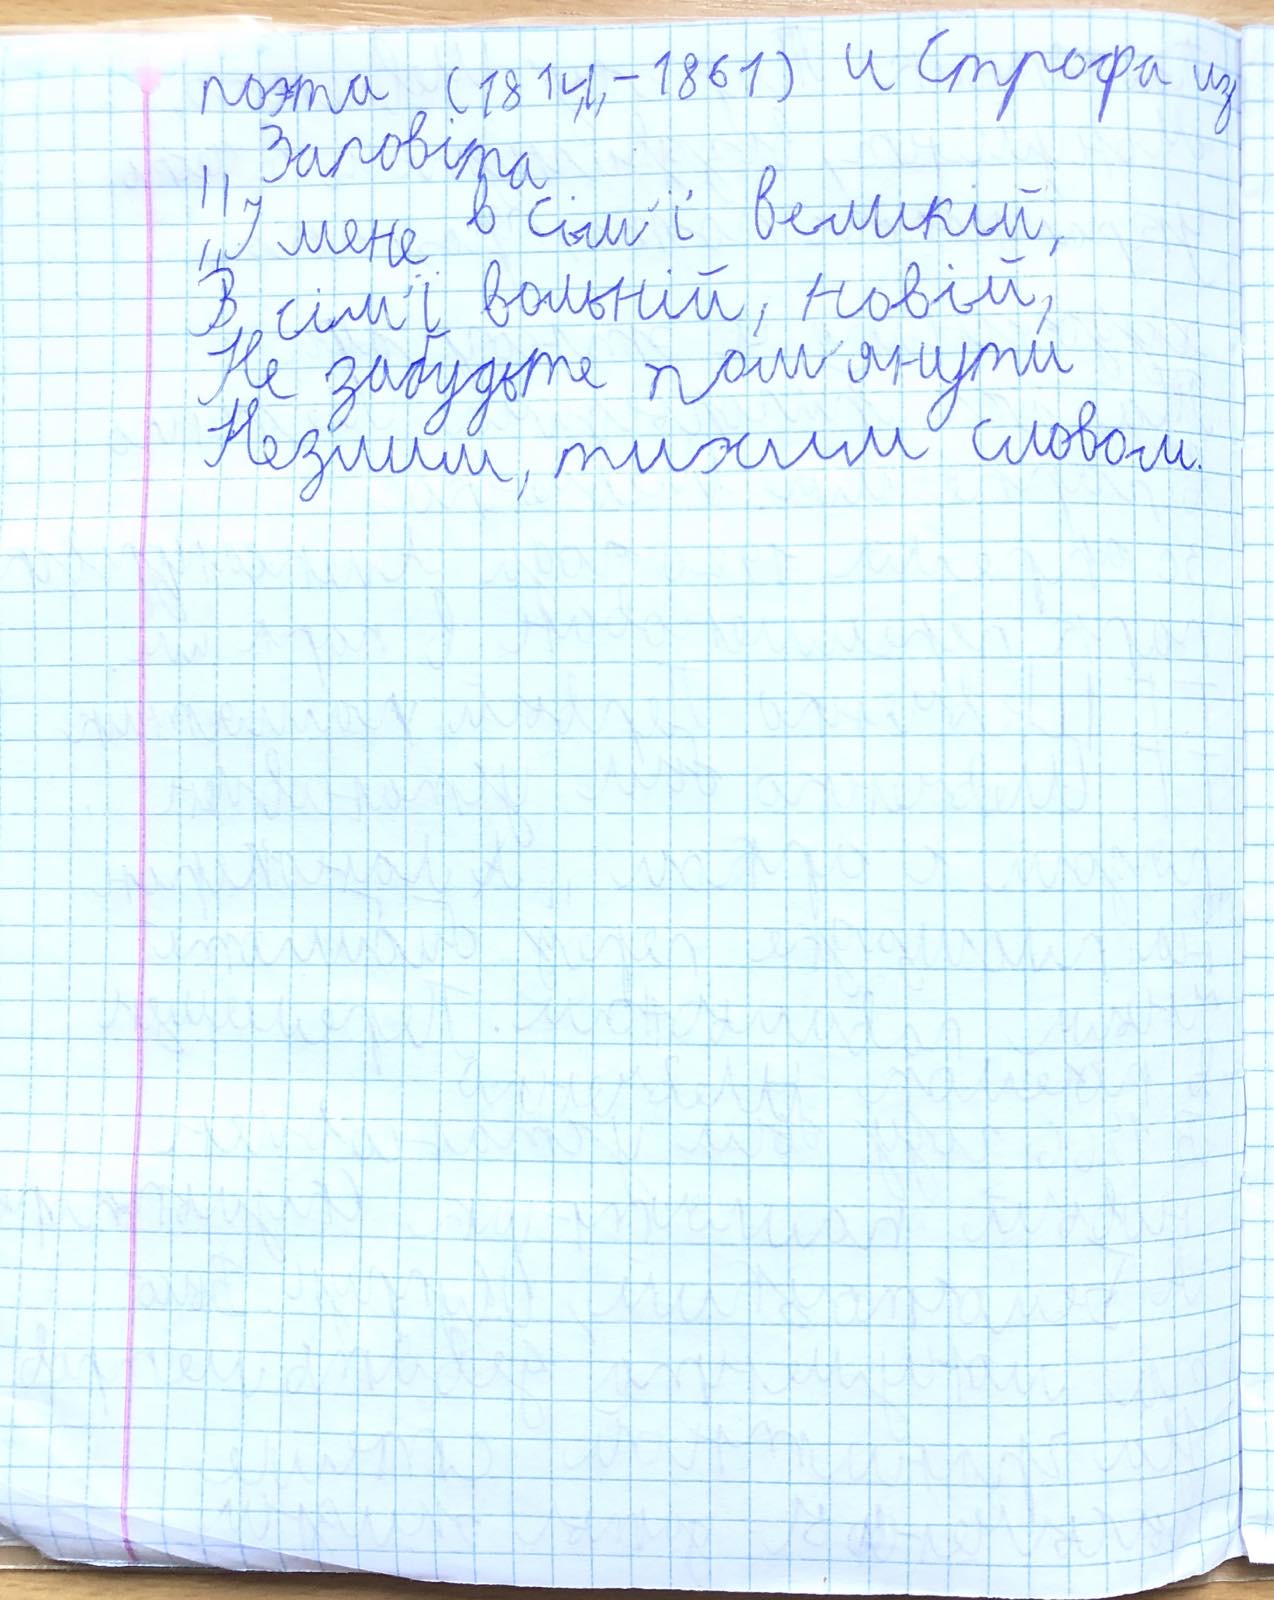 поэта (1814,-1861) и Строфа из
„Заповіта
„І мене в сім'ї великій,
В сім'ї вольній, новій,
Не забудьте пом'янути
Незлим, тихим словом.